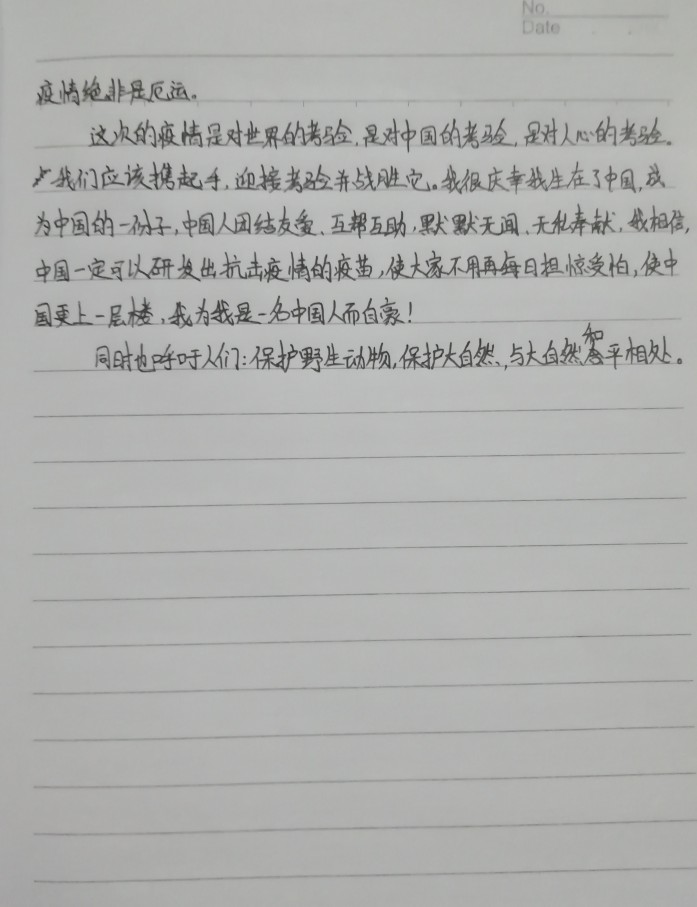 No.
Date
疫情绝非是厄运。
这次的疫情是对世界的考验,是对中国的考验,是对人心的考验。
我们应该携起手,迎接考验并战胜它。我很庆幸我生在了中国,成
为中国的一份子,中国人团结友爱、互帮互助,默默无闻、无私奉献,我相信,
中国一定可以研发出抗击疫情的疫苗,使大家不用再每日担惊受怕,使中
国更上一层楼,我为我是一名中国人而自豪!
同时也呼吁人们:保护野生动物,保护大自然,与大自然和平相处。